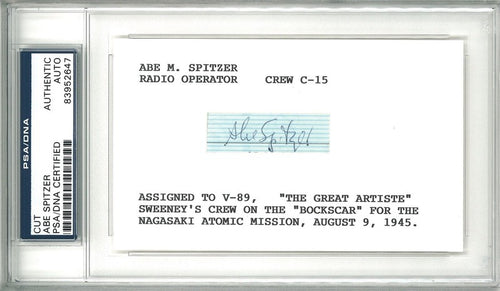 PSA/DNA
AUTHENTIC
AUTO
83952647
CUT
ABE SPITZER
PSA/DNA CERTIFIED
ABE M. SPITZER
RADIO OPERATOR CREW C-15
Abe Spitzer
ASSIGNED TO V-89, "THE GREAT ARTISTE"
SWEENEY'S CREW ON THE "BOCKSCAR" FOR THE
NAGASAKI ATOMIC MISSION, AUGUST 9, 1945.